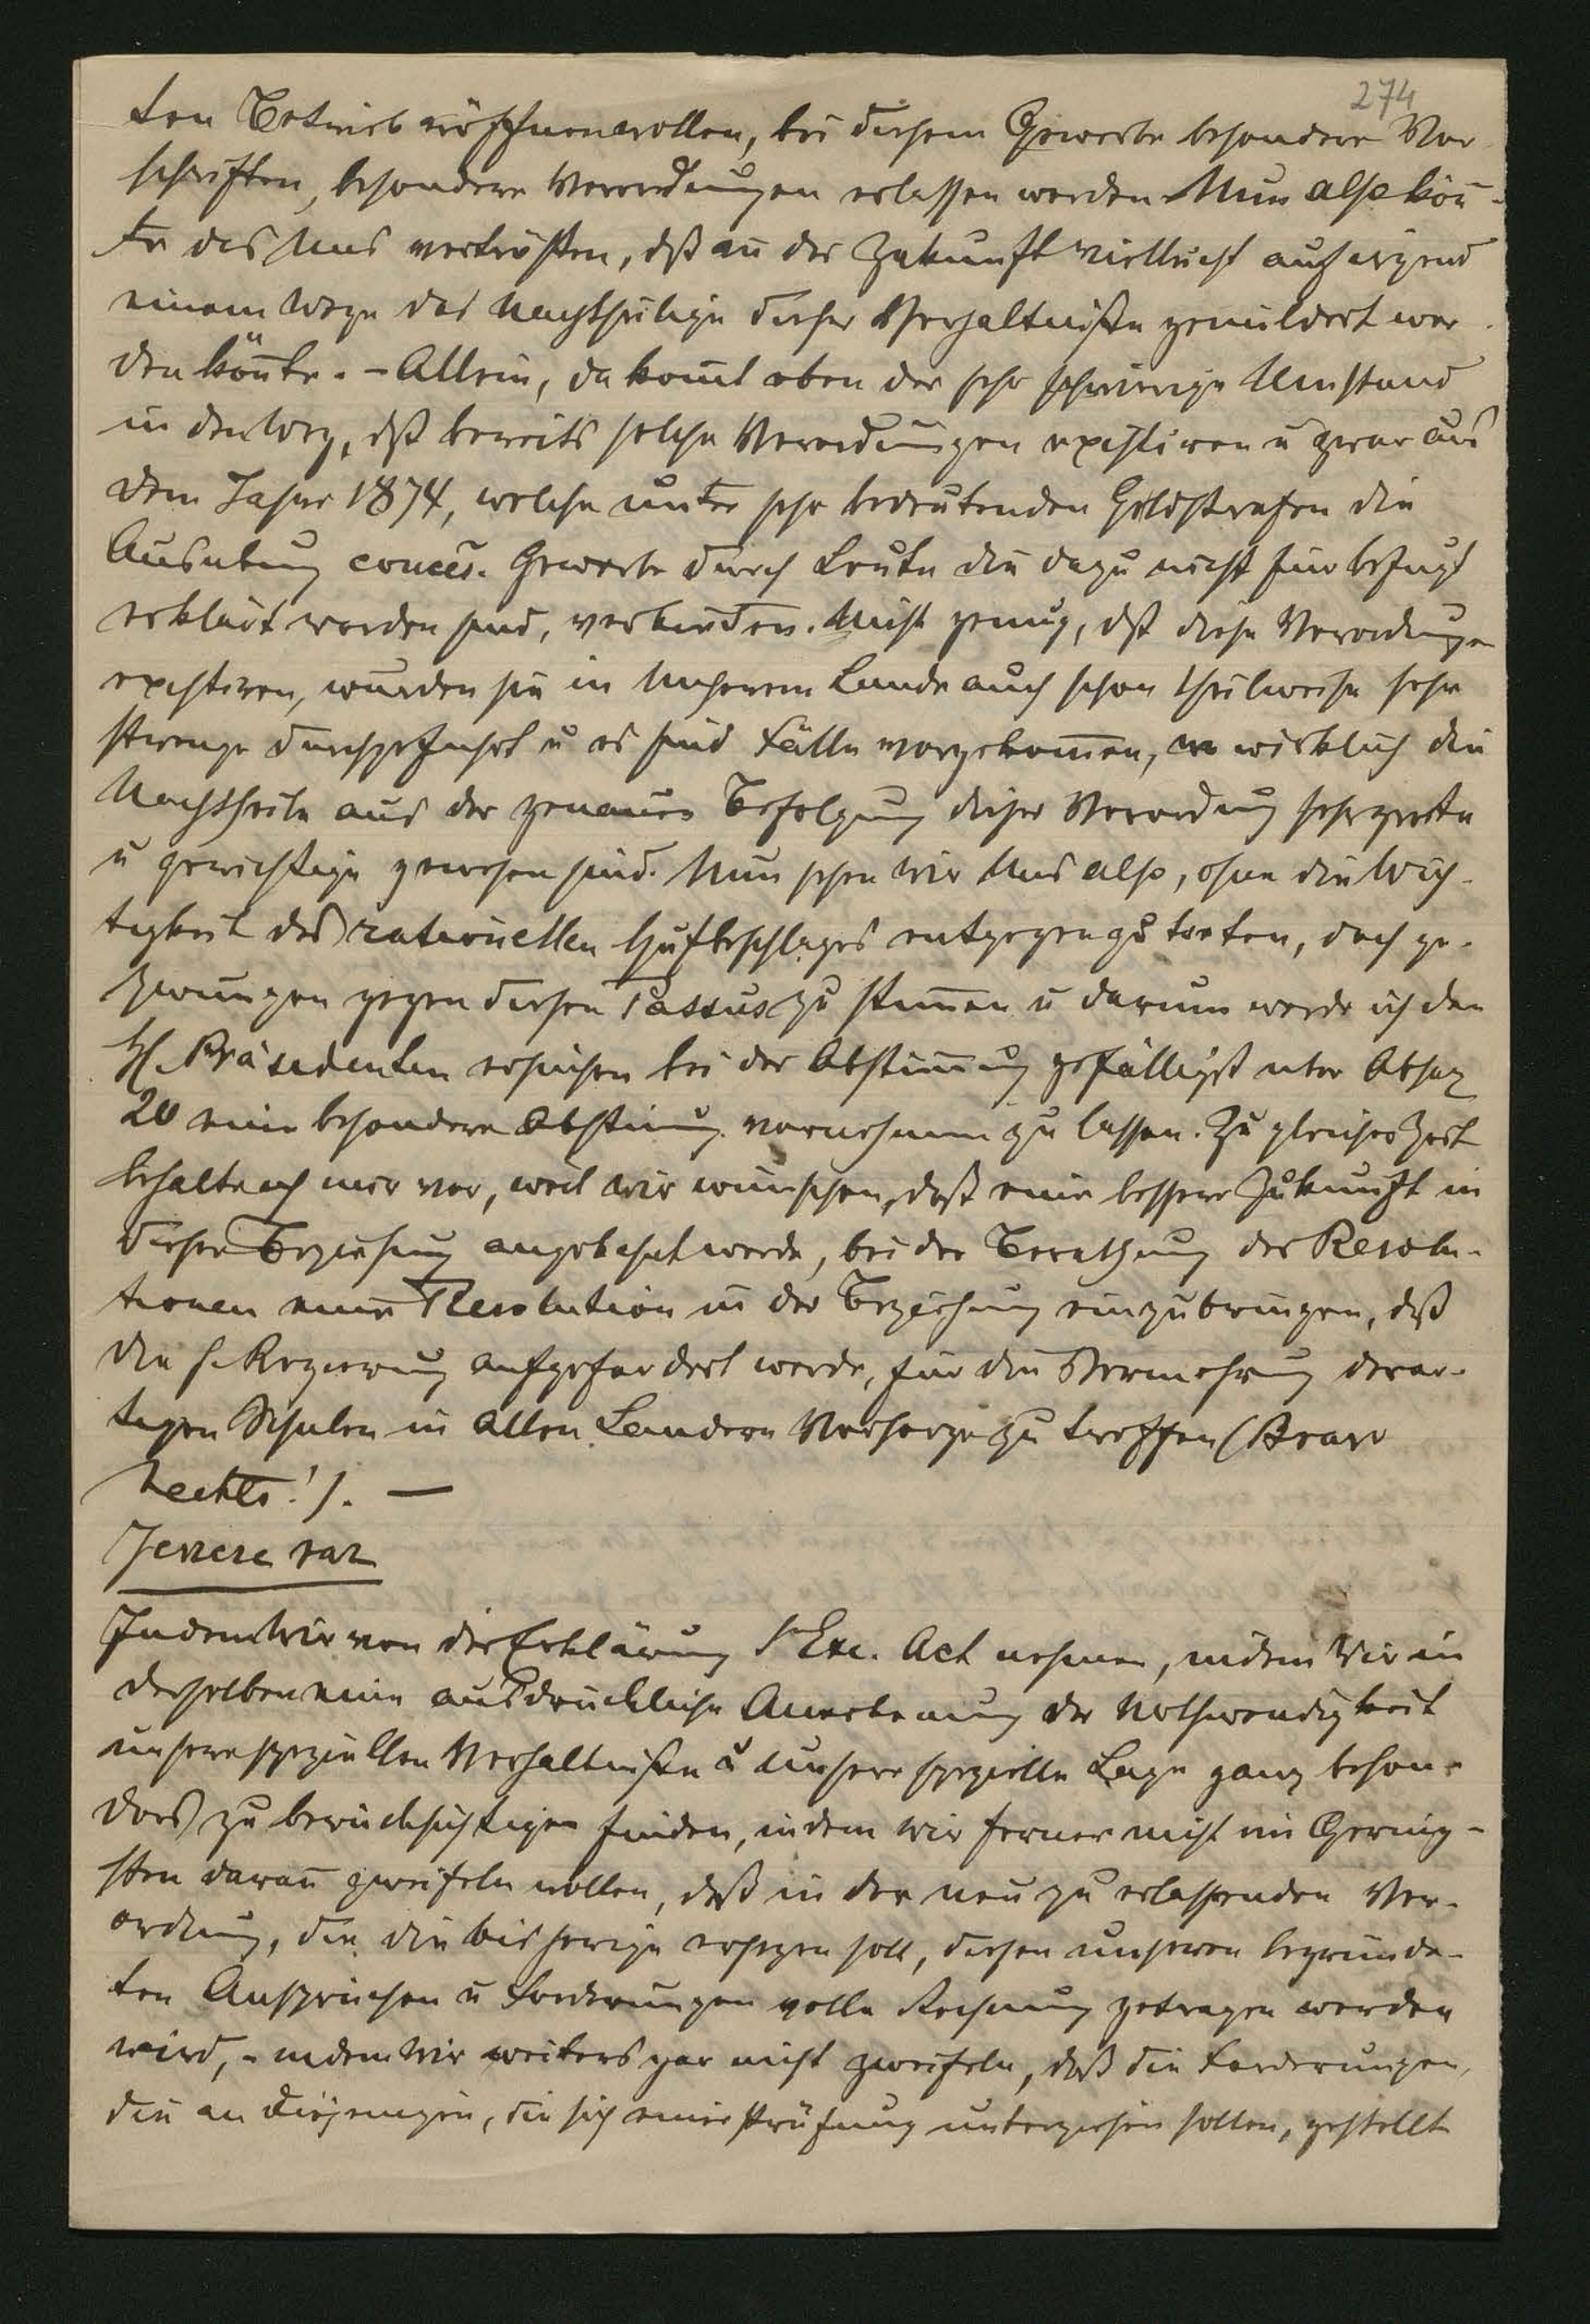 274
ten Betrieb eröffnen wollen, bei diesem Gewerbe besondere Vor-
schriften, besondere Verordnungen erlassen werden. Nun also kön̄-
te das Uns vertrösten, dß an der Zukunft vielleicht auf irgend
einem Wege das Nachtheilige dieser Verhältniße gemildert wer-
den kön̄te. - Allein, da kom̄t eben der sehr schwierige Umstand
in den Weg, dß bereits solche Verordnungen existiren u zwar aus
dem Jahre 1874, welche unter sehr bedeutenden Geldstrafen die
Ausübung conces. Gewerbe durch Leute die dazu nicht für befugt
erklärt worden sind, verbieten. Nicht genug, dß diese Verordnungen
existiren, wurden sie in Unserem Lande auch schon theilweise sehr
strenge durchgeführt u es sind Fälle vorgekom̄en, wo wirklich die
Nachtheile aus der genauen Befolgung dieser Verordnung sehr große
u gewichtige gewesen sind. Nun sehen wir Uns also, ohne die Wich-
tigkeit des rationellen Hufbeschlages entgegenzutreten, doch ge-
zwungen gegen diesen Passus zu stim̄en u darum werde ich den
H. Präsidenten ersuchen bei der Abstim̄ung gefälligst über Absaz
20 eine besondere Abstim̄ung vornehmen zu lassen. Zu gleicher Zeit
behalte ich mir vor, weil wir wünschen, daß eine bessere Zukunft in
dieser Beziehung angebahnt werde, bei der Berathung der Resolu-
tionen eine Resolution in der Beziehung einzubringen, daß
die h. Regierung aufgefordert werde, für die Vermehrung derar-
tigen Schulen in allen Ländern Vorsorge zu treffen (Bravo
rechts!). —
Indem Wir von der Erklärung Sr Exc. Act nehmen, indem Wir in
derselben eine ausdrückliche Anerkenung der Nothwendigkeit
unsere speziellen Verhältniße u Unsere spezielle Lage ganz beson-
ders zu berücksichtigen finden, indem wir ferner nicht im Gering-
sten daran zweifeln wollen, daß in der neu zu erlassenden Ver-
ordnung, die die bisherige ersezen soll, diesen unseren begründe-
ten Ansprüchen u Forderungen volle Rechnung getragen werden
wird, - indem Wir weiters gar nicht zweifeln, daß die Forderungen,
die an diejenigen, die sich einer Prüfung unterziehen sollen, gestellt